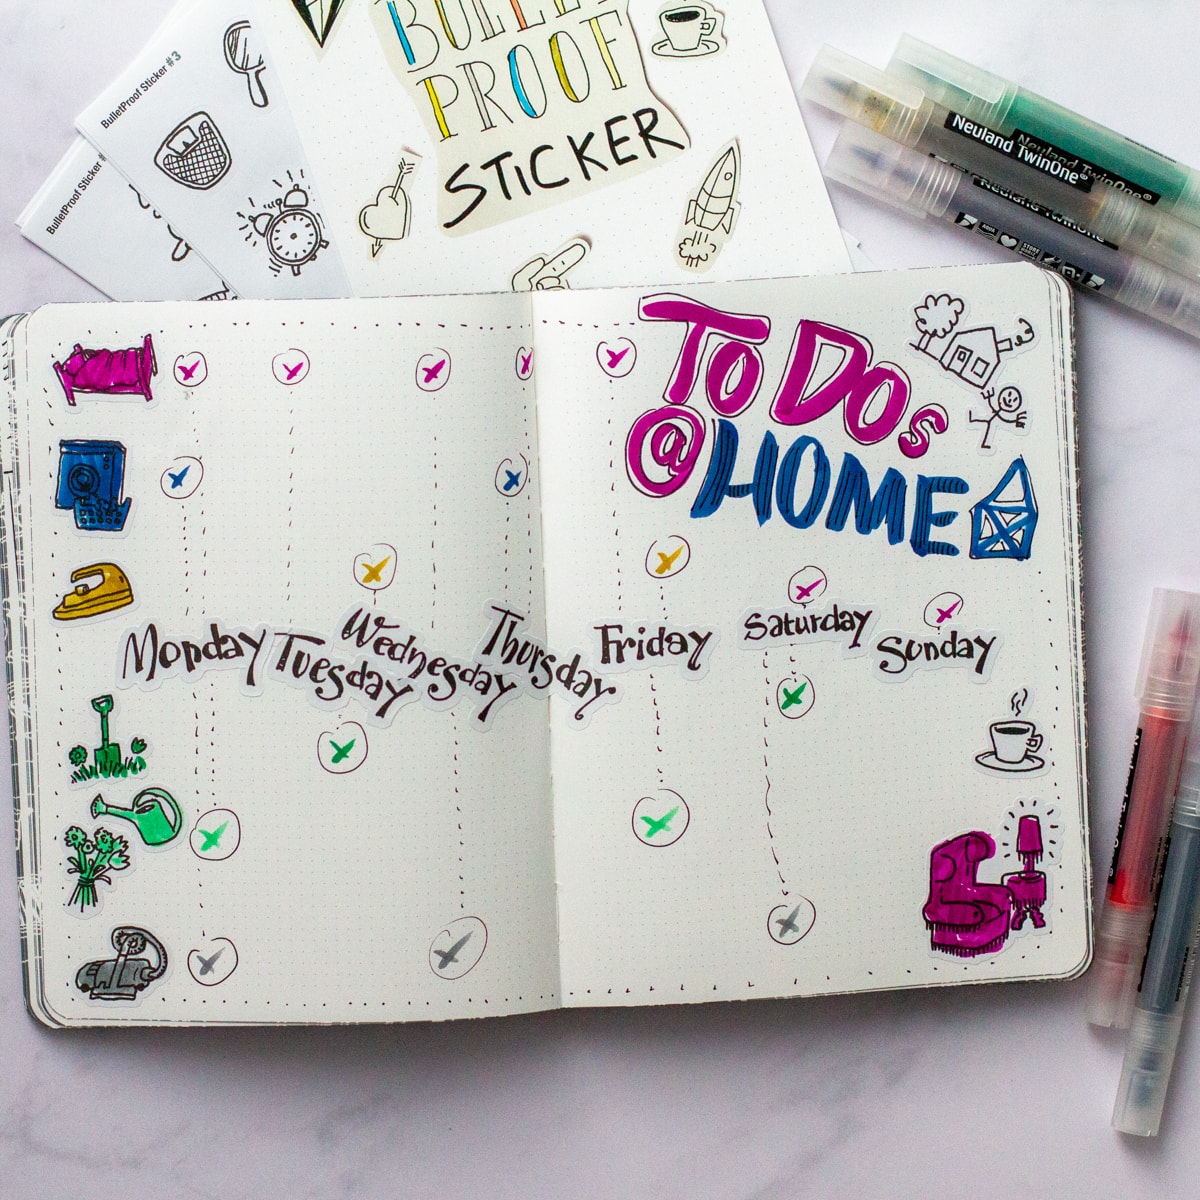 BulletProof Sticker #3
BulletProof Sticker #
PROOF
STICKER
Neuland TwinOne®
Neuland TwinOne®
Neuland TwinOne®
To Dos
@HOME
Monday
Tuesday
Wednesday
Thursday
Friday
Saturday
Sunday